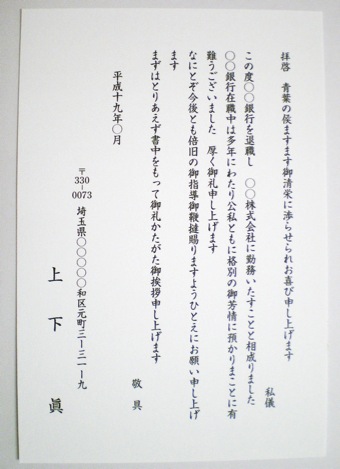 拝啓　青葉の候ますます御清栄に渉らせられお喜び申し上げます
私儀
この度〇〇銀行を退職し　〇〇株式会社に勤務いたすことと相成りました
〇〇銀行在職中は多年にわたり公私ともに格別の御芳情に預かりまことに有
難うございました　厚く御礼申し上げます
なにとぞ今後とも倍旧の御指導御鞭撻賜りますようひとえにお願い申し上げ
ます
まずはとりあえず書中をもって御礼かたがた御挨拶申し上げます
敬具
平成十九年〇月
〒330-0073　埼玉県〇〇〇〇〇和区元町三ー三一ー九
上下眞